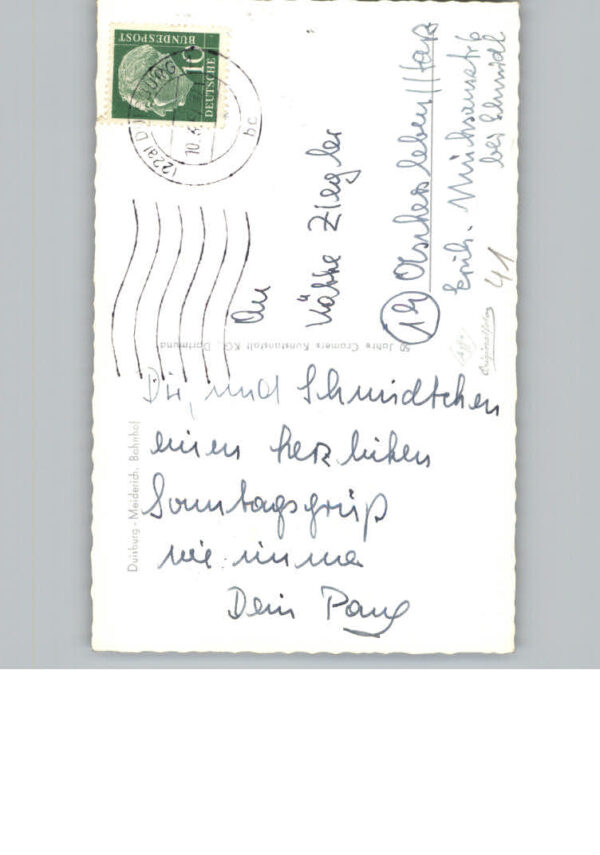 DEUTSCHE
BUNDESPOST
10
(22a) DUISBURG
10.5.
bc
An
Käthe Ziegler
(19) Aschersleben//Harz
Erich-Mühsamstr 6
bei Schmidt
41
Originalfoto
Jahre Cramers Kunstanstalt KG., Dortmund
Duisburg-Meiderich, Bahnhof
Dir, und Schmidtchen
einen herzlichen
Sonntagsgruß
wie immer
Dein